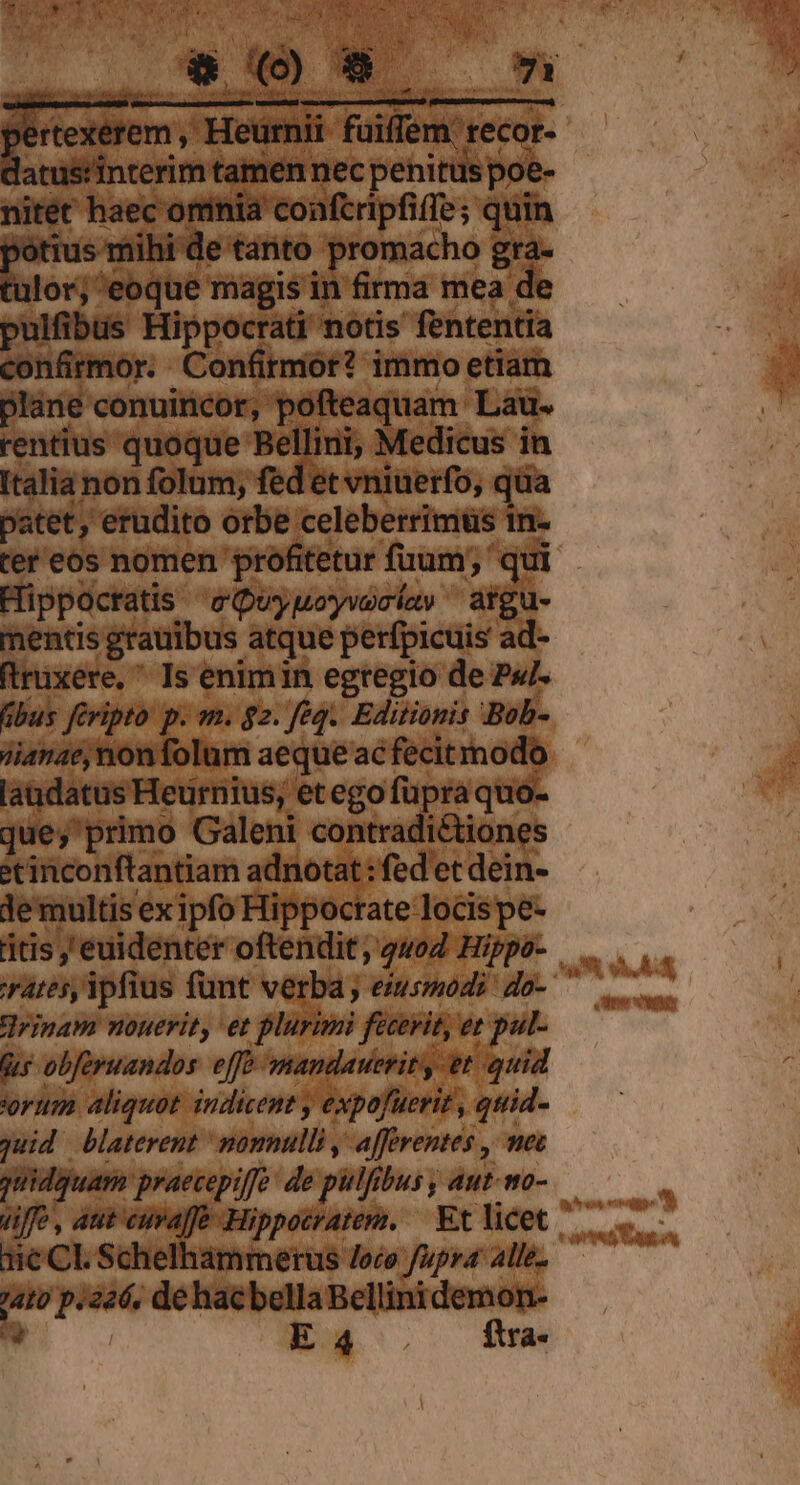 ❁ (o) ❁ 71
pertexerem, Heurnii fuiſſem recor-
datus: interim tamen nec penitus poe-
nitet haec omnia conſcripſiſſe; quin
potius mihi de tanto promacho gra-
tulor, eoque magis in firma mea de
pulſibus Hippocrati notis ſententia
confirmor. Confirmor? immo etiam
plane conuincor, poſteaquam Lau-
rentius quoque Bellini, Medicus in
Italia non ſolum, ſed et vniuerſo, qua
patet, erudito orbe celeberrimus in-
ter eos nomen profitetur ſuum, qui
Hippocratis σφυγμογνωσίαν argu-
mentis grauibus atque perſpicuis ad-
ſtruxere. Is enim in egregio de Pul-
ſibus ſcripto p. m. 82. ſeq. Editionis Boh-
nianae, non ſolum aeque ac fecit modo
laudatus Heurnius, et ego ſupra quo-
que, primo Galeni contradictiones
et inconſtantiam adnotat: ſed et dein-
de multis ex ipſo Hippocrate locis pe-
titis, euidenter oſtendit, quod Hippo-
crates, ipſius ſunt verba, eiusmodi do-
ctrinam nouerit, et plurimi fecerit, et pul-
ſus obſeruandos eſſe mandauerit, et quid
eorum aliquot indicent, expoſuerit, quid-
quid blaterent nonnulli, aſſerentes, nec
quidquam praecepiſſe de pulſibus, aut no-
uiſſe, aut curaſſe Hippocratem. Et licet
hic Cl. Schelhammerus loco ſupra alle-
gato p. 226. de hac bella Bellini demon-
E 4 ſtra-